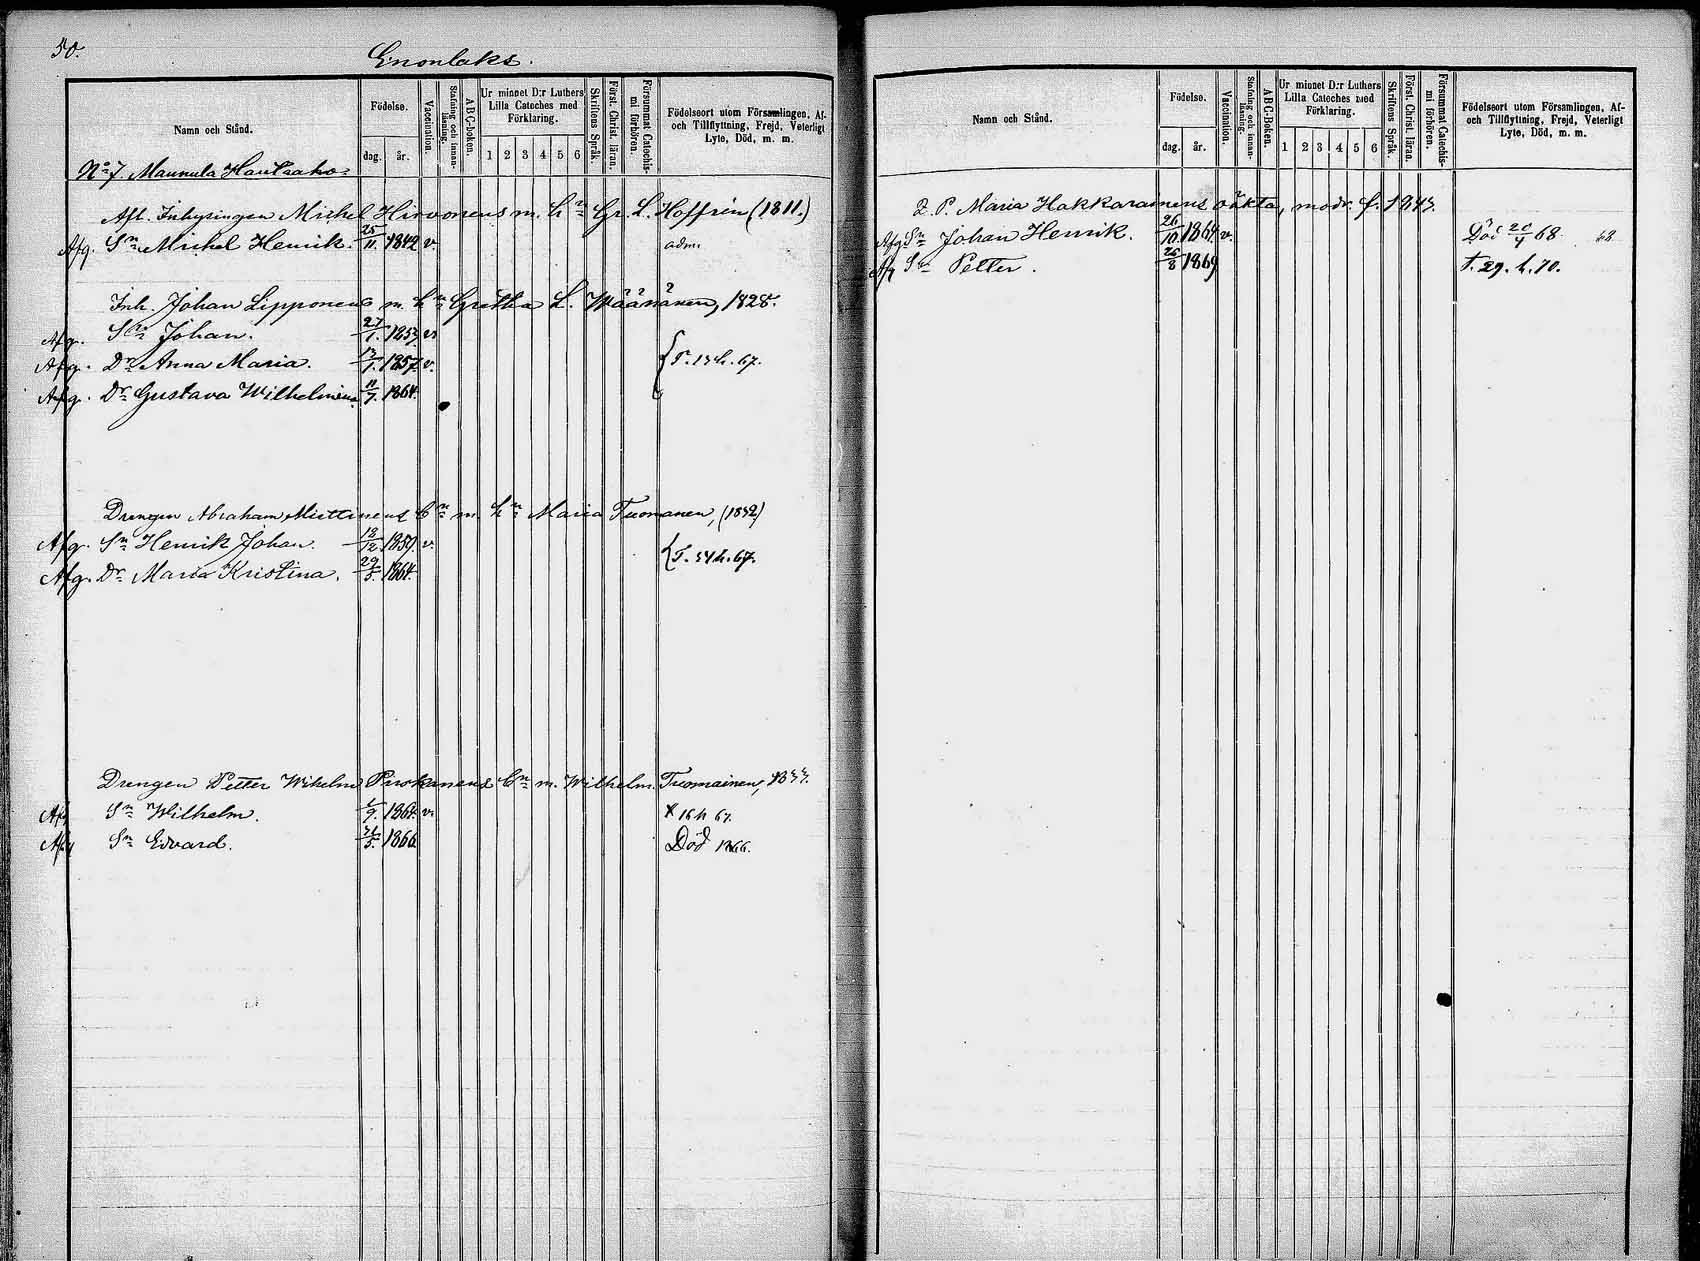 50.
Enonlaks.
Namn och Stånd.
Födelse.
dag. år.
Vaccination.
Stafning och innanläsning.
ABC-boken.
Ur minnet D:r Luthers Lilla Cateches med Förklaring.
1 2 3 4 5 6
Skriftens Språk.
Först. Christ. läran.
Försummat Catechismi förhören.
Födelseort utom Församlingen, Af- och Tillflyttning, Frejd, Veterligt Lyte, Död, m. m.
No 7. Mannula Hautaaho
Afl. Inhysingen Michel Hirvonens m. hn Gr. L. Hoffrén (1811.)
Afg. Sn Michel Henrik. 25/11. 1849 v. adm.
Inh. Johan Lipponens m. hn Gretha L. Wäänänen, 1828.
Afg. Sn Johan. 27/1. 1853. v.
Afg. Dr Anna Maria. 13/1. 1857. v. T. 154. 67.
Afg. Dr Gustava Wilhelmina 11/7. 1864.
Drengen Abraham Miettinens Bn m. hn Maria Tuomanen, (1832)
Afg. Sn Henrik Johan. 13/12. 1859. v.
Afg. Dr Maria Kristina. 29/5. 1864. T. 54h. 67.
Drengen Petter Wilhelm Pirskanens Bn m. Wilhelm. Tuomainen, 1837.
Afg Sn Wilhelm. 9. 1864. v. X 16 h 67.
Afg Sn Edvard. 5. 1866. Död 1866.
Namn och Stånd.
Födelse.
dag. år.
Vaccination.
Stafning och innanläsning.
ABC-Boken.
Ur minnet D:r Luthers Lilla Cateches med Förklaring.
1 2 3 4 5 6
Skriftens Språk.
Först. Christ. läran.
Försummat Catechismi förhören.
Födelseort utom Församlingen, Af- och Tillflyttning, Frejd, Veterligt Lyte, Död, m. m.
Q. P. Maria Hakkarainens oäkta, modr. f. 1843.
Afg Sn Johan Henrik. 26/10. 1864. v. Död 20/4 68. 68
Afg Sn Petter. 26/8 1869 T. 29. h. 70.